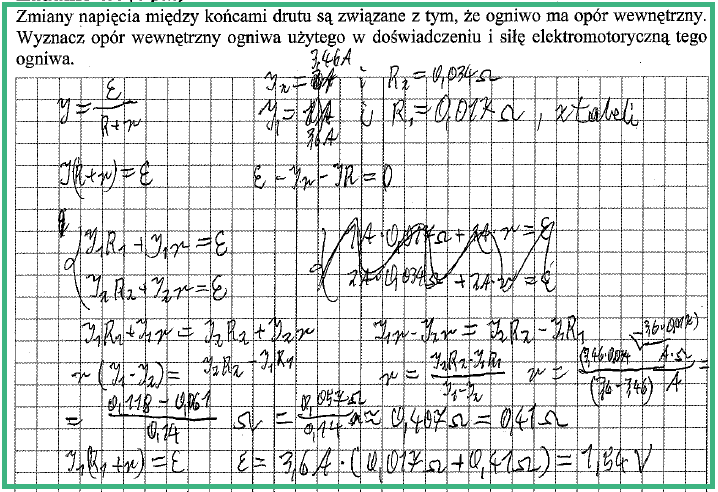 Zmiany napięcia między końcami drutu są związane z tym, że ogniwo ma opór wewnętrzny.
Wyznacz opór wewnętrzny ogniwa użytego w doświadczeniu i siłę elektromotoryczną tego
ogniwa.
3,46A
I₂ = i R₂ = 0,034Ω
I = ε/(R+r) I₁ = i R₁ = 0,017Ω, z tabeli
3,6A
I(R+r) = ε ε - Ir - IR = 0
I₁R₁ + I₁r = ε 1A·0,017Ω + 1A·r = ε
I₂R₂ + I₂r = ε 2A·0,034Ω + 2A·r = ε
I₁R₁ + I₁r = I₂R₂ + I₂r I₁r - I₂r = I₂R₂ - I₁R₁
r(I₁-I₂) = I₂R₂ - I₁R₁ r = (I₂R₂ - I₁R₁)/(I₁-I₂) r = (3,46·0,034 - 3,6·0,017)/(3,6-3,46) A·Ω/A =
= (0,118 - 0,061)/0,14 Ω = 0,057Ω/0,14 ≈ 0,407Ω = 0,41Ω
I₁(R₁+r) = ε ε = 3,6A·(0,017Ω + 0,41Ω) = 1,54V